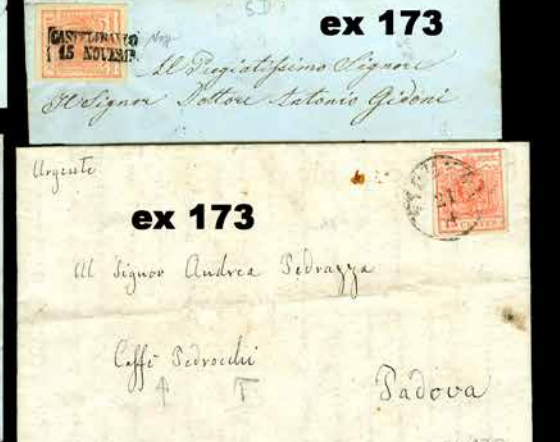 ex 173
S.D.
CASTELFRANCO
15 NOVEMB.
Al Pregiatissimo Signore
Il Signor Dottore Antonio Gidoni
Urgente
ex 173
21
4
15 CENTES
All Signor Andrea Pedrazza
Caffè Pedrocchi
Padova